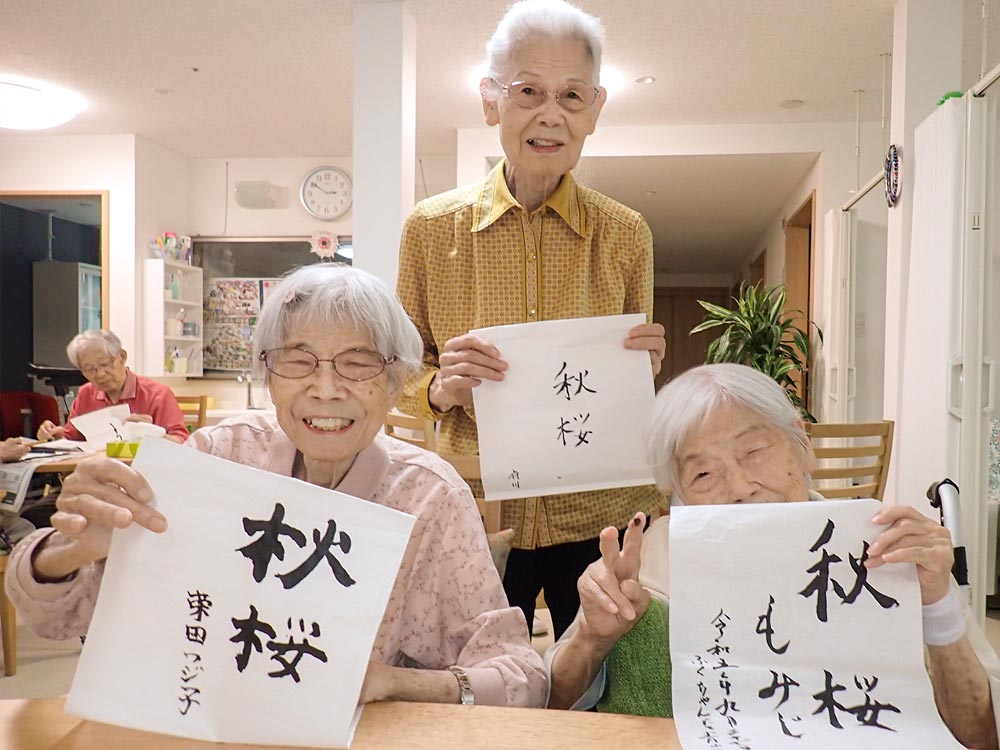 秋桜
栗田フジ子
秋桜
竹川
秋桜
もみじ
令和五年九月